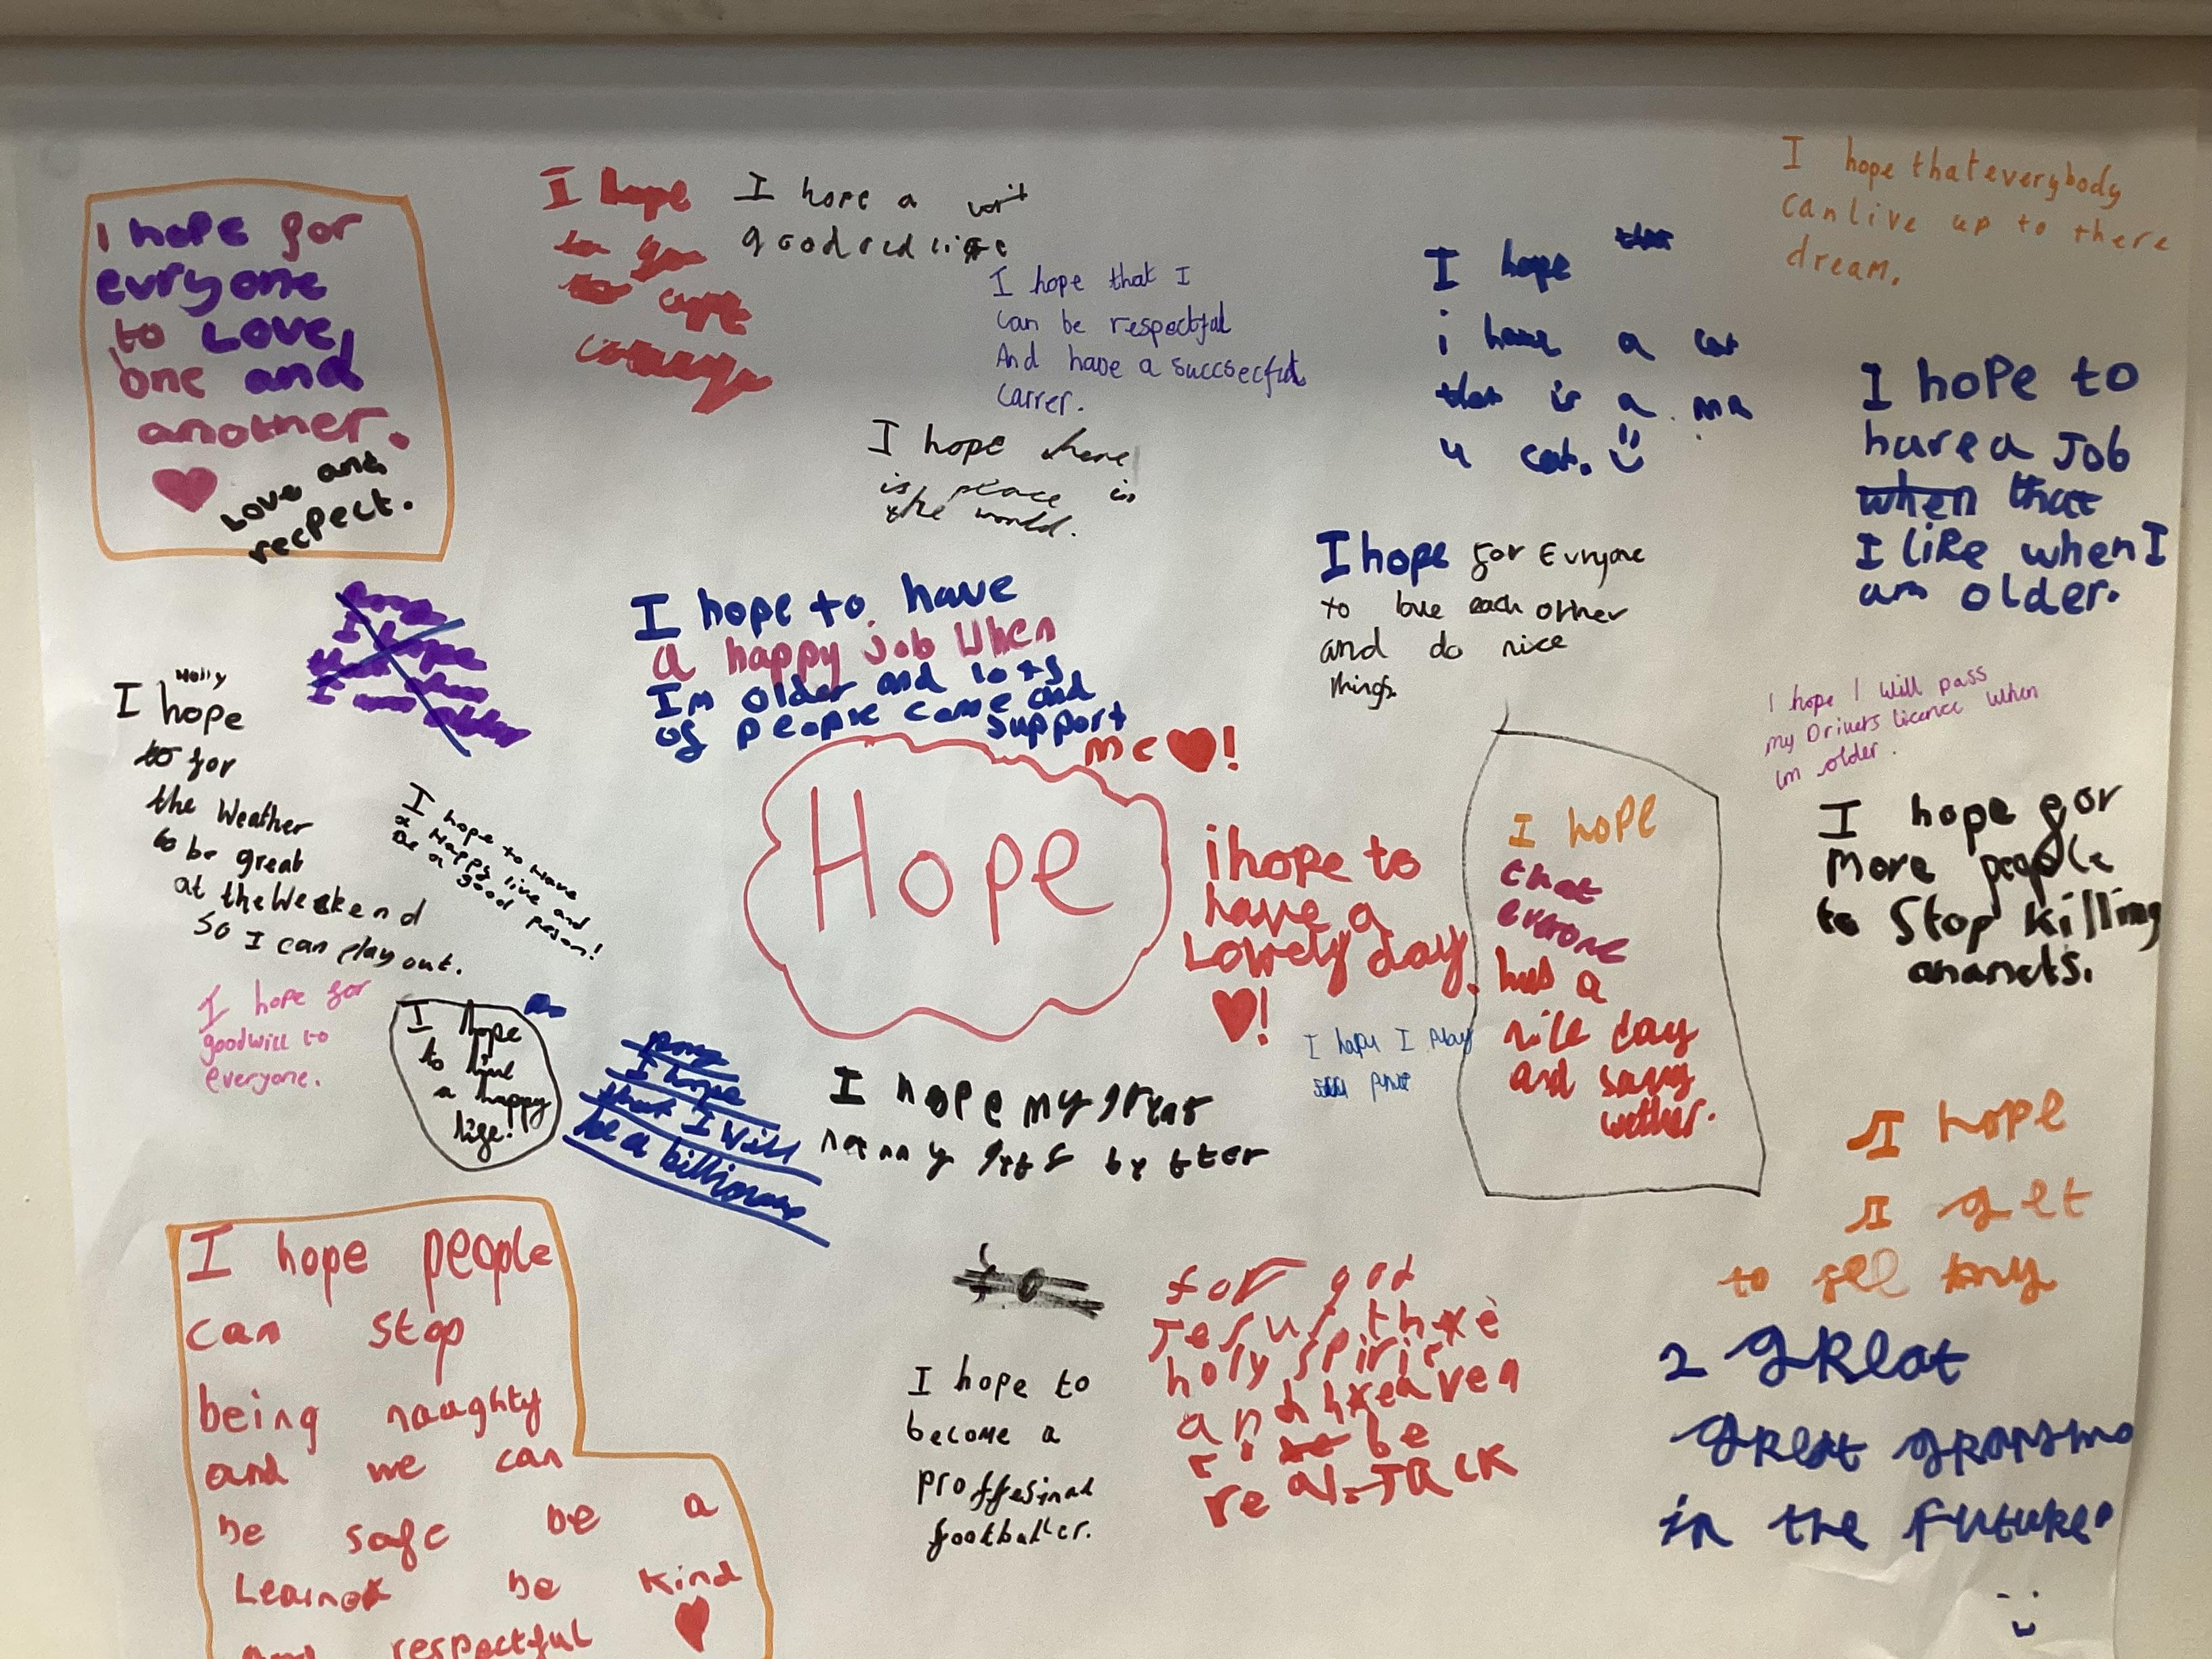 I hope for
evryone
to Love
one and
another.
Love and
recpect.
I hope
I hope a
good
I hope that I
can be respectful
And have a succsecful
carrer.
I hope there
is peace in
the world.
I hope
i have a cat
that is a
cat.
I hope that everybody
can live up to there
dream.
I hope to
have a Job
when that
I like when I
am older.
I hope for Evryone
to love each other
and do nice
things.
I hope to have
a happy job when
Im older and lots
of people came and
support
me !
Holly
I hope
to for
the Weather
to be great
at the Weekend
so I can play out.
I hope to have
a Happy live and
be a good person!
I hope for
goodwill to
everyone.
I hope
to live
a happy
life!
I hope
that I will
be a billionare
Hope
i hope to
have a
Lovely day.
!
I hope I play
I hope
that
everone
has a
nice day
and sunny
wether.
I hope I will pass
my Drivers licence when
im older.
I hope for
More people
to Stop killing
I hope my great
nanny gets better
I hope people
can stop
being naughty
and we can
be safe be a
Learner be kind
And respectful
I hope to
become a
proffesinal
footballer.
for god
Jesus the
holy spirit
and heaven
be
real.JACK
I hope
I get
to see my
2 great
great
in the future